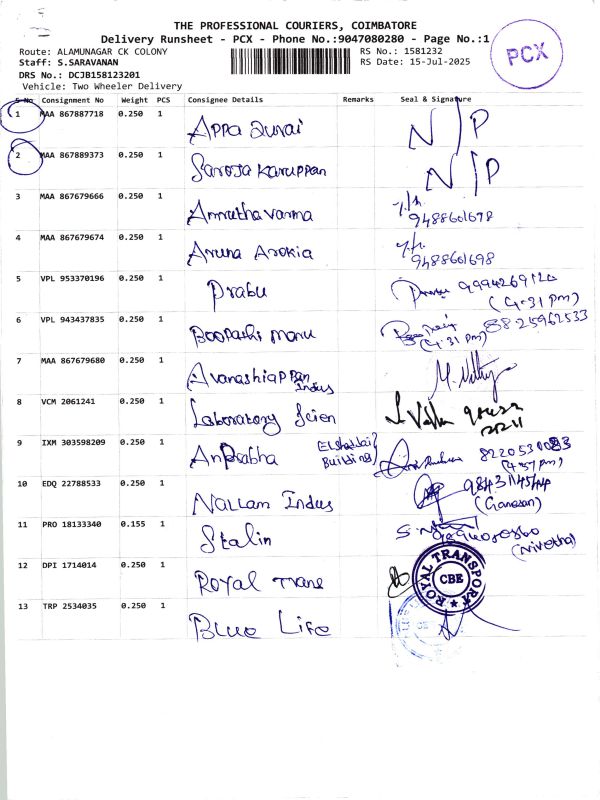 THE PROFESSIONAL COURIERS, COIMBATORE
Delivery Runsheet - PCX - Phone No.:9047080280 - Page No.:1
PCX
Route: ALAMUNAGAR CK COLONY RS No.: 1581232
Staff: S.SARAVANAN RS Date: 15-Jul-2025
DRS No.: DCJB158123201
Vehicle: Two Wheeler Delivery
S No Consignment No Weight PCS Consignee Details Remarks Seal & Signature
1 MAA 867887718 0.250 1 Appa Durai N/P
2 MAA 867889373 0.250 1 Saroja Karuppan N/P
3 MAA 867679666 0.250 1 Amrutha varma 9488601698
4 MAA 867679674 0.250 1 Aruna Arokia 9488601698
5 VPL 953370196 0.250 1 Prabu
(4.31 pm)
6 VPL 943437835 0.250 1 Boopathi Monu 8825962533
(4.31 pm)
7 MAA 867679680 0.250 1 Avanashiappan
Indus
8 VCM 2061241 0.250 1 Laboratory Scien
9 IXM 303598209 0.250 1 AnPrabha Elshaddai
Building
(4.57 pm)
10 EDQ 22788533 0.250 1 Nallam Indus
(Ganesan)
11 PRO 18133340 0.155 1 Stalin
(Nivetha)
12 DPI 1714014 0.250 1 Royal Trans ROYAL TRANSPORT CBE
13 TRP 2534035 0.250 1 Blue Life